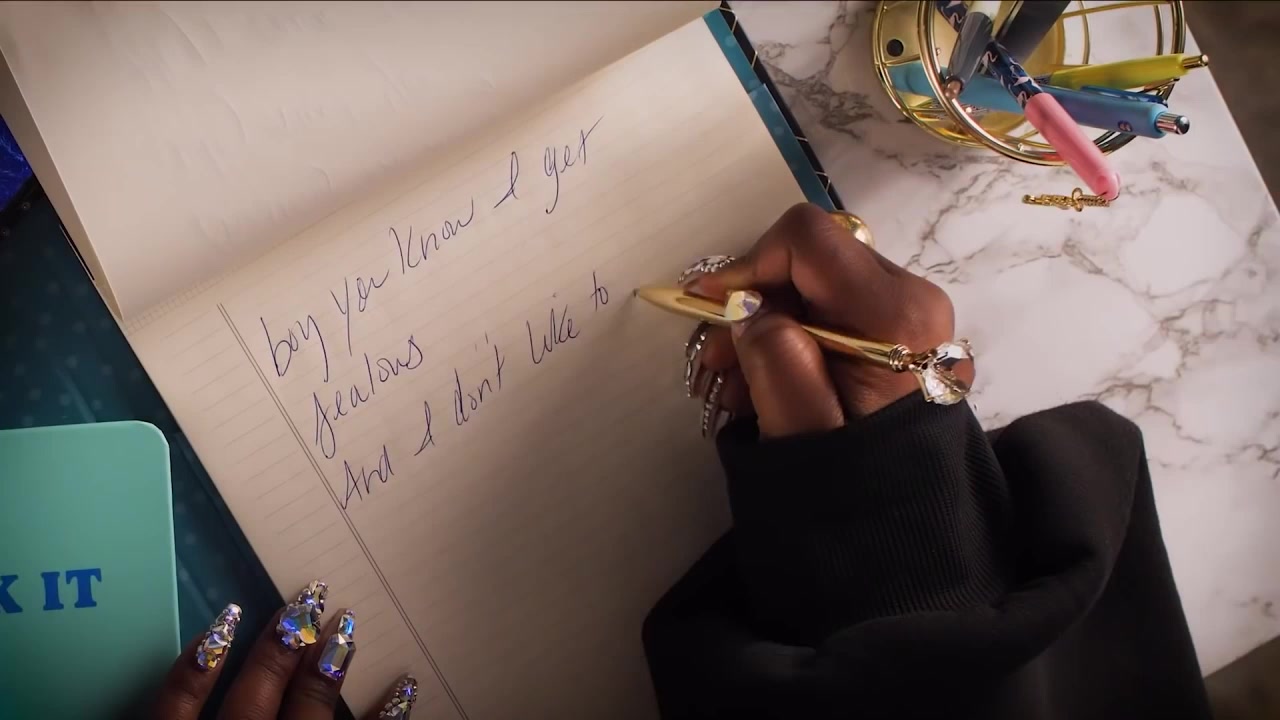 boy you know I get
jealous
And I don't like to
K IT